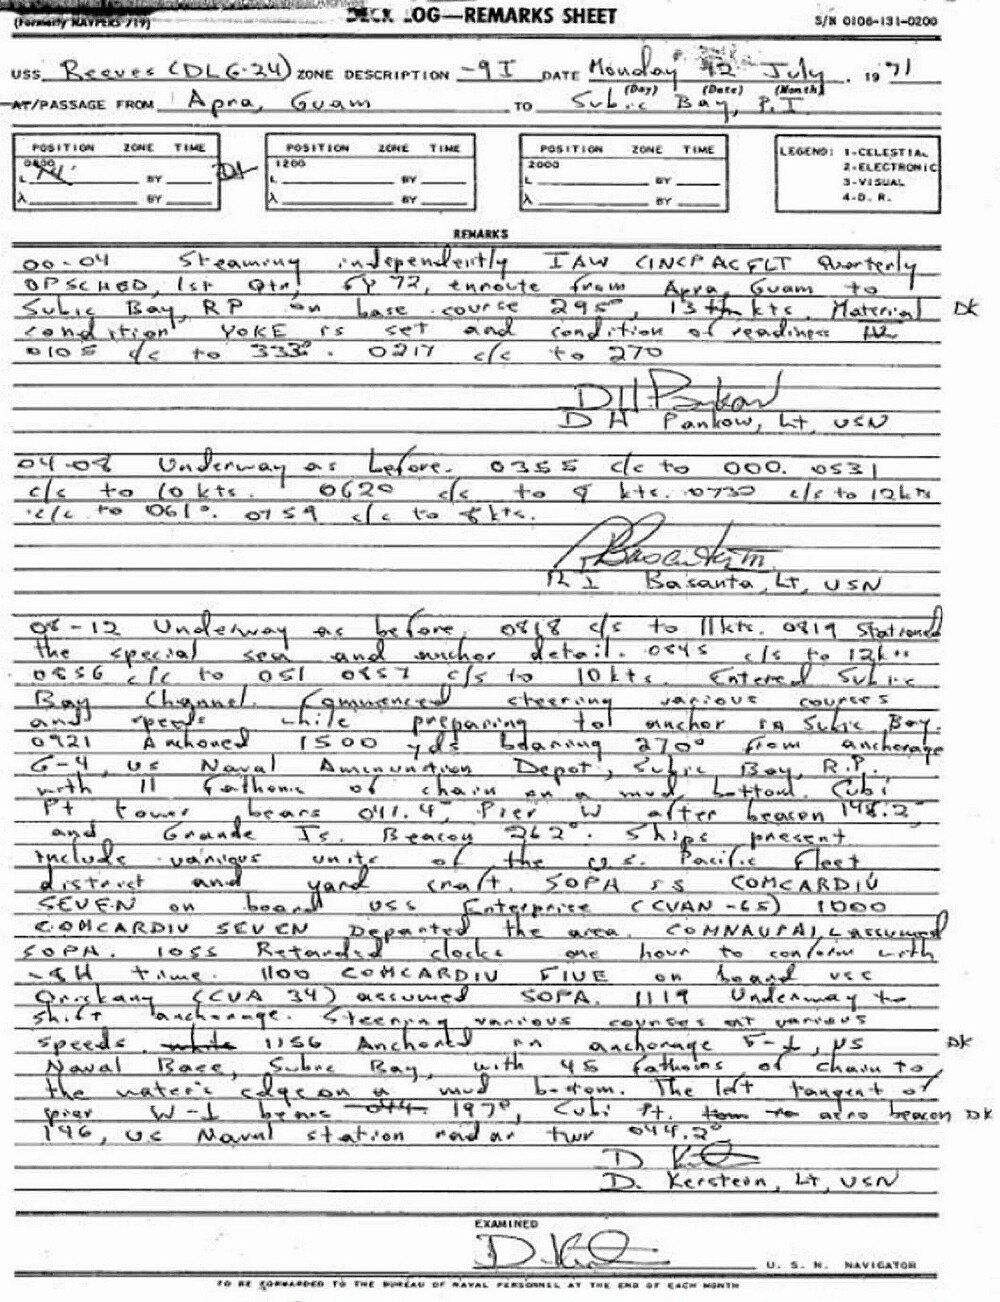 (Formerly NAVPERS 719)
DECK LOG—REMARKS SHEET
S/N 0106-131-0200
USS Reeves (DLG-24) ZONE DESCRIPTION -9I DATE Monday 12 July 1971
(Day) (Date) (Month)
AT/PASSAGE FROM Apra, Guam TO Subic Bay, P.I.
POSITION ZONE TIME
0800
L BY
λ BY
POSITION ZONE TIME
1200
L BY
λ BY
POSITION ZONE TIME
2000
L BY
λ BY
LEGEND: 1-CELESTIAL
2-ELECTRONIC
3-VISUAL
4-D. R.
REMARKS
00-04 Steaming independently IAW CINCPACFLT Quarterly
OPSCHED, 1st Qtr, FY 72, enroute from Apra, Guam to
Subic Bay, RP on base course 295°, 13 kts. Material DK
condition YOKE is set and condition of readiness
0105 c/c to 333°. 0217 c/c to 270
D H Pankow
D H Pankow, Lt, USN
04-08 Underway as before. 0355 c/c to 000. 0531
c/s to 10 kts. 0620 c/s to 8 kts. 0730 c/s to 12kts
c/c to 061°. 0759 c/s to 8kts.
R I Basanta, Lt, USN
08-12 Underway as before, 0818 c/s to 11kts. 0819 Stationed
the special sea and anchor detail. 0845 c/s to 12kts
0856 c/c to 051 0857 c/s to 10kts. Entered Subic
Bay Channel. Commenced steering various courses
and speeds while preparing to anchor in Subic Bay.
0921 Anchored 1500 yds bearing 270° from anchorage
G-4, US Naval Ammunition Depot, Subic Bay, R.P.,
with 11 fathoms of chain on a mud bottom. Cubi
Pt tower bears 041.4°, Pier W after beacon 148.2°,
and Grande Is. Beacon 262°. Ships present
include various units of the U.S. Pacific Fleet
district and yard craft. SOPA is COMCARDIV
SEVEN on board USS Enterprise (CVAN-65) 1000
COMCARDIV SEVEN Departed the area. COMNAVPAIL assumed
SOPA. 1055 Retarded clocks one hour to conform with
-8H time. 1100 COMCARDIV FIVE on board USS
Oriskany (CVA 34) assumed SOPA. 1119 Underway to
shift anchorage. Steering various courses at various
speeds. while 1156 Anchored in anchorage 5-1, US DK
Naval Base, Subic Bay, with 45 fathoms of chain to
the water's edge on a mud bottom. The left tangent of
pier W-1 bears 044 197°, Cubi Pt. aero beacon DK
146, US Naval station radar twr 044.2°
D. Kerstein, Lt, USN
EXAMINED
U. S. N. NAVIGATOR
TO BE FORWARDED TO THE BUREAU OF NAVAL PERSONNEL AT THE END OF EACH MONTH